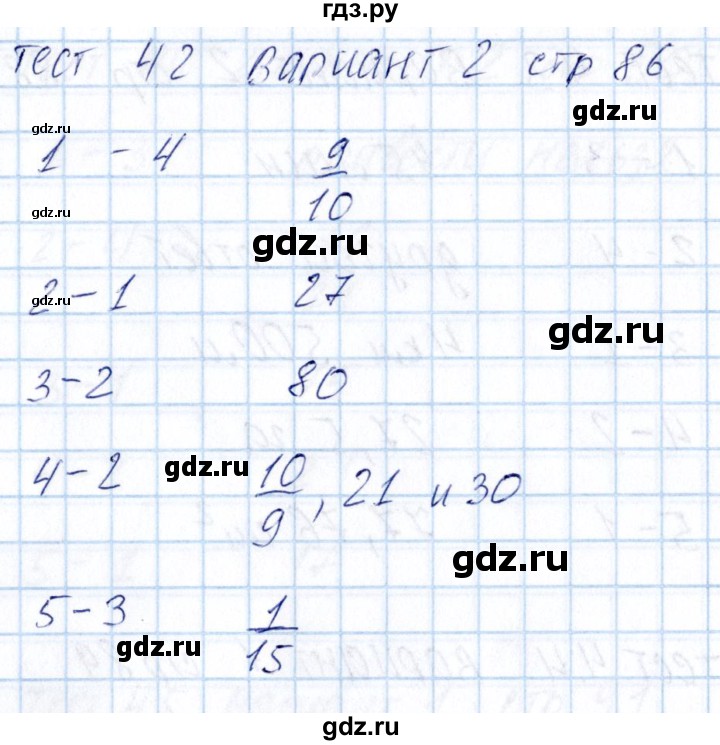 гдз.ру
Тест 42 Вариант 2 стр 86
gdz.ru
gdz.ru
1 - 4 9/10
gdz.ru
gdz.ru
2 - 1 27
gdz.ru
gdz.ru
3 - 2 80
4 - 2 10/9, 21 и 30
gdz.ru
gdz.ru
5 - 3 1/15
gdz.ru
gdz.ru
gdz.ru